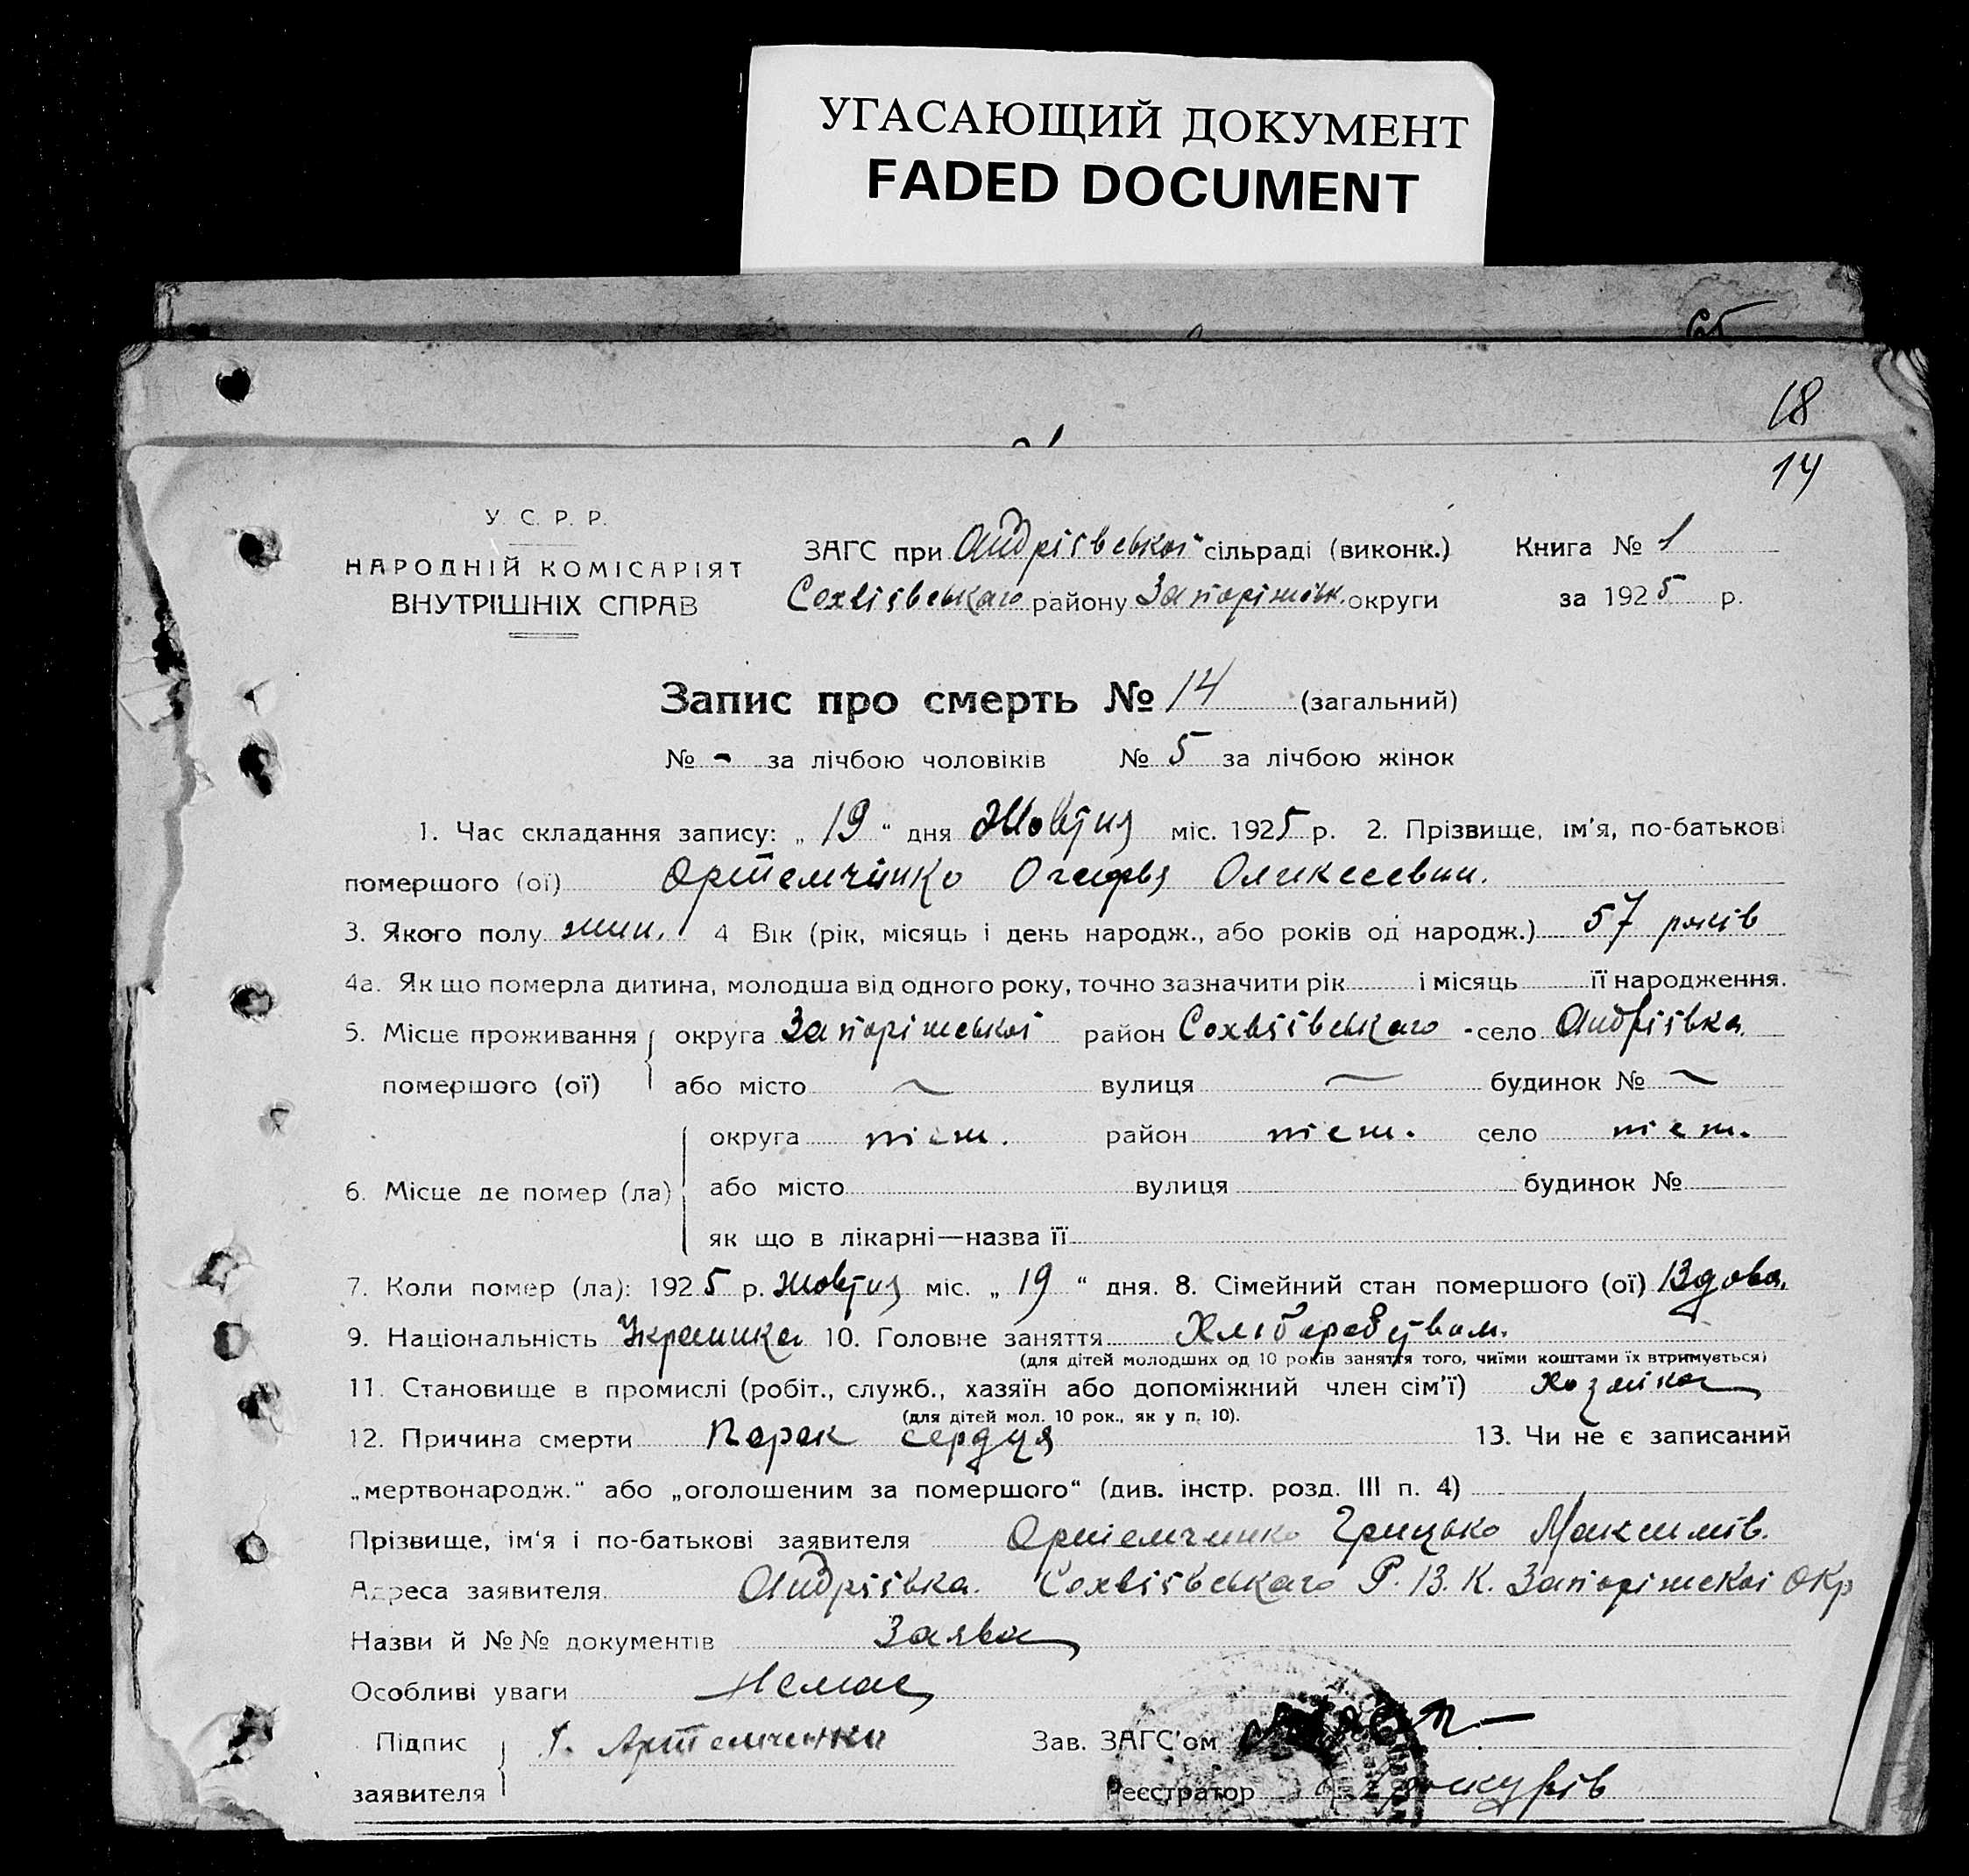 УГАСАЮЩИЙ ДОКУМЕНТ
FADED DOCUMENT
65
18
14
У. С. Р. Р.
НАРОДНІЙ КОМІСАРІЯТ
ВНУТРІШНІХ СПРАВ
ЗАГС при Андріівськоі сільраді (виконк.)
Софіівського району Запоріжськ. округи
Книга № 1
за 1925 р.
Запис про смерть № 14 (загальний)
№ - за лічбою чоловіків № 5 за лічбою жінок
1. Час складання запису: „ 19 “ дня Жовтня міс. 1925 р. 2. Прізвище, ім'я, по-батькові
помершого (ої) Артемчинко Агафья Алексеевни.
3. Якого полу жин. 4 Вік (рік, місяць і день народж., або років од народж.) 57 років
4а. Як що померла дитина, молодша від одного року, точно зазначити рік і місяць її народження.
5. Місце проживання округа Запоріжськоі район Софіівського село Андріівка.
помершого (ої) або місто — вулиця — будинок № —
округа тіеж. район тіеж. село тіеж.
6. Місце де помер (ла) або місто вулиця будинок №
як що в лікарні—назва її
7. Коли помер (ла): 1925 р. Жовтня міс. „ 19 “ дня. 8. Сімейний стан помершого (ої) Вдова.
9. Національність Украинка 10. Головне заняття Хліборобством.
(для дітей молодших од 10 років заняття того, чиїми коштами їх втримується)
11. Становище в промислі (робіт., служб., хазяїн або допоміжний член сім'ї) Хозяйка
(для дітей мол. 10 рок., як у п. 10).
12. Причина смерти Порок сердця 13. Чи не є записаний
„мертвонародж.“ або „оголошеним за помершого“ (див. інстр. розд. III п. 4)
Прізвище, ім'я і по-батькові заявителя Артемчинко Грицько Максимів.
Адреса заявителя Андріівка. Софіівського Р. В. К. Запоріжскоі Окр
Назви й №№ документів Заява
Особливі уваги Немає
Підпис Г. Артемченко Зав. ЗАГС'ом
заявителя Реєстратор